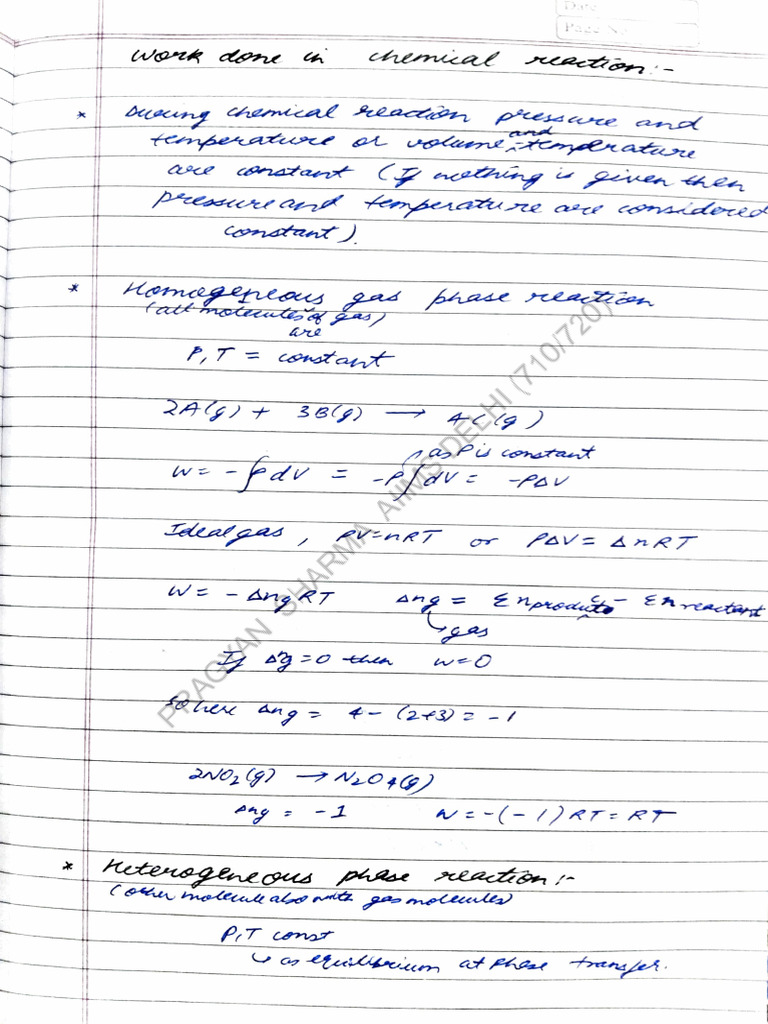 Date
Page No
Work done in chemical reaction:-
* During chemical reaction pressure and
temperature or volume and temperature
are constant (If nothing is given then
pressure and temperature are considered
constant).
* Homogeneous gas phase reaction
(all molecules are of gas)
P,T = constant
2A(g) + 3B(g) → 4C(g)
as P is constant
W = -∫PdV = -P∫dV = -PΔV
Ideal gas, PV=nRT or PΔV = ΔnRT
W = -ΔngRT Δng = Σnproducts - Σnreactant
↳gas
If Δng=0 then W=0
So here Δng = 4-(2+3) = -1
2NO2(g) → N2O4(g)
Δng = -1 W = -(-1)RT = RT
* Heterogeneous phase reaction:-
(other molecule also with gas molecules)
P,T const
↳ as equilibrium at phase transfer.
PRAGYAN SHARMA AIIMS DELHI (710/720)